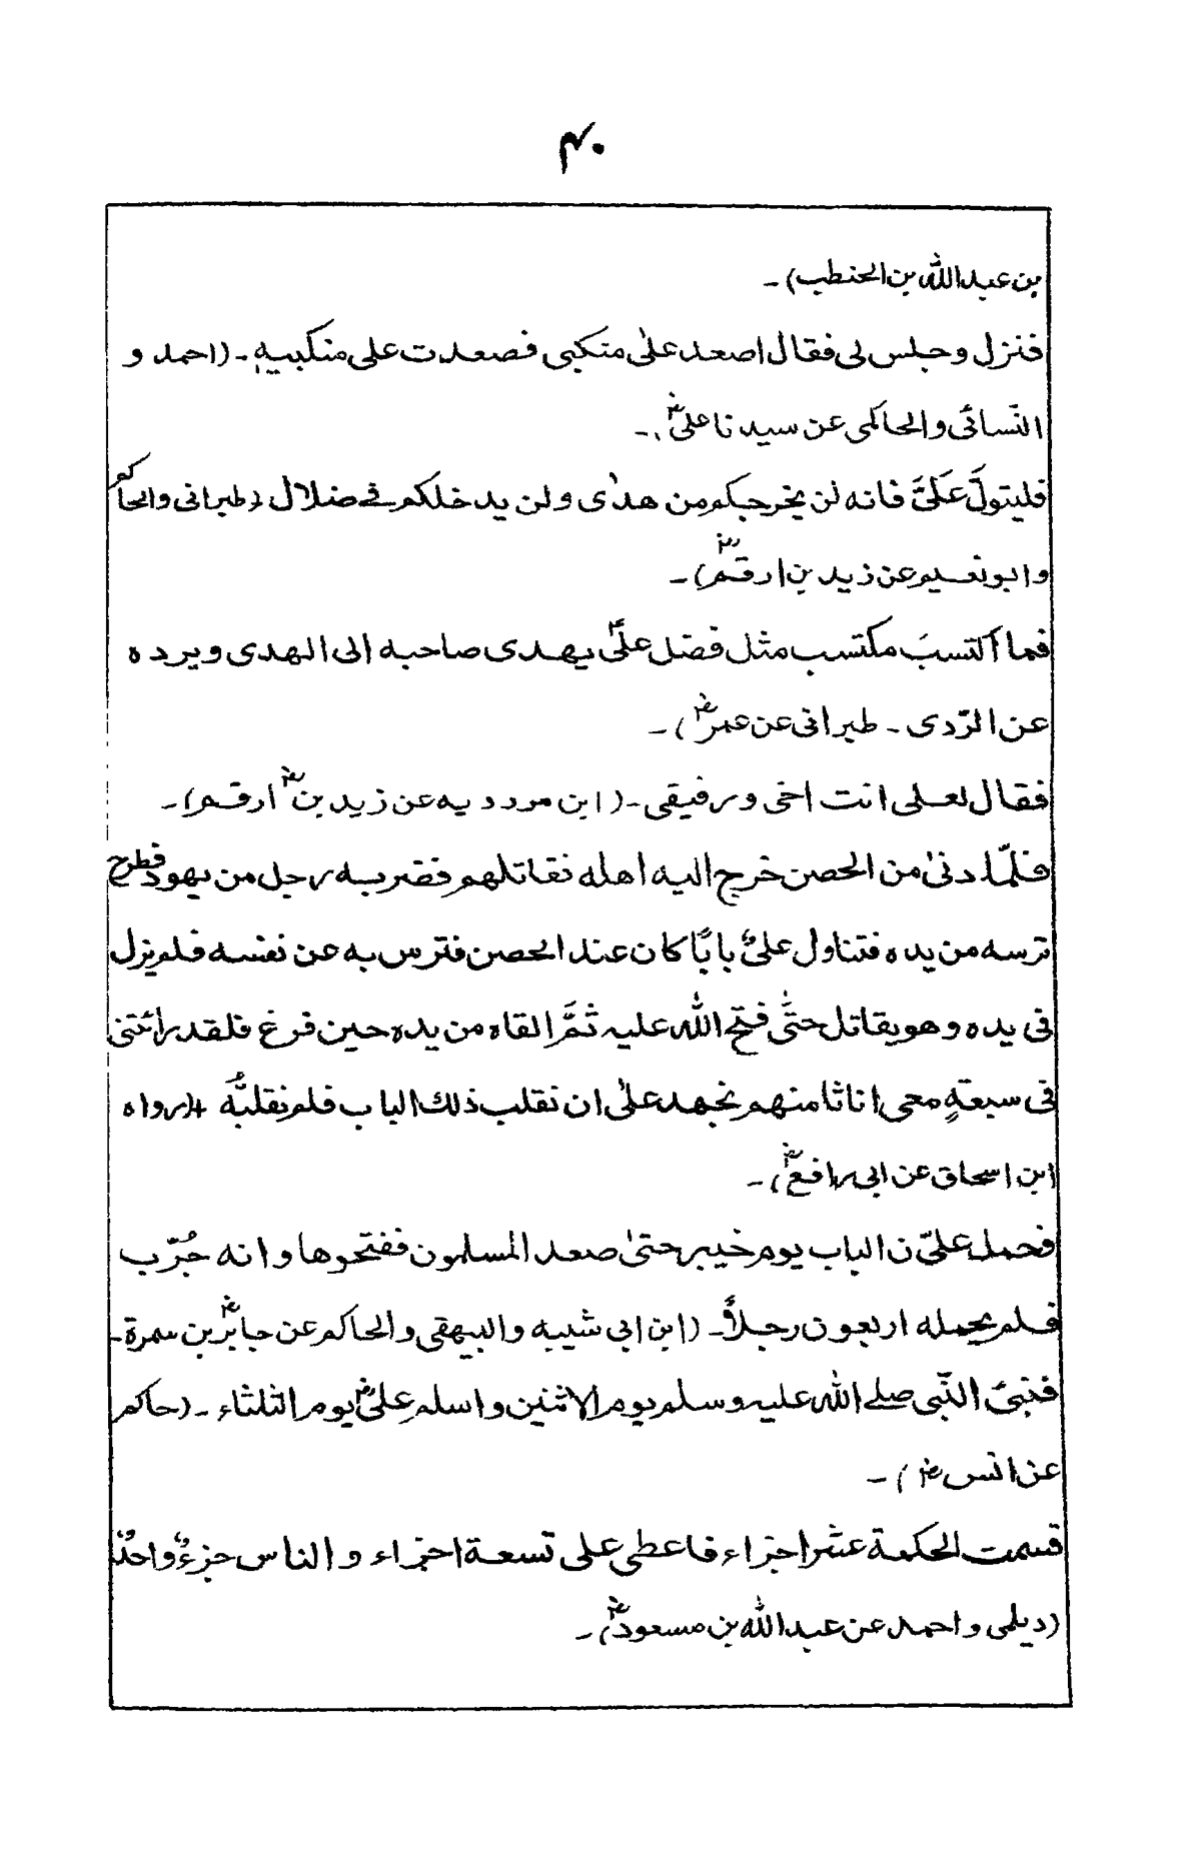 ۴۰
بن عبد الله بن الحنطب)۔
فنزل وجلس لی فقال اصعد علیٰ منکبی فصعدت علی منکبیهٖ۔ (احمد و
النّسائی والحاکمی عن سیدنا علیؓ)۔
فلیتولَّ عَلیَّ فانه لن یخرجکم من هدٰی ولن یدخلکم فی ضلال (طبرانی والحاکم
وابونعیم عن زید بن ارقمؓ)۔
فما اکتسبَ مکتسب مثل فضل علیؓ یهدی صاحبه الی الهدی ویرده
عن الرّدی۔ طبرانی عن عمرؓ)۔
فقال لعلی انت اخی ورفیقی۔ (ابن مردویه عن زید بنؓ ارقم)۔
فلمّا دنیٰ من الحصن خرج الیه اهله فقاتلهم فضربه رجل من یهود فطرح
ترسه من یده فتناول علیؓ بابًا کان عند الحصن فترس به عن نفسه فلم یزل
فی یده وهو یقاتل حتّٰی فتح الله علیه ثمَّ القاه من یده حین فرغ فلقد رائتنی
فی سبعةٍ معی اناثامنهم نجهد علیٰ ان نقلب ذلك الباب فلم نقلبُّه (رواه
ابن اسحاق عن ابی رافعؓ)۔
فحمل علیّ ن الباب یوم خیبر حتیٰ صعد المسلمون ففتحوها وانه جُرّب
فلم یحمله اربعون رجلاً۔ (ابن ابی شیبه والبیهقی والحاکم عن جابرؓ بن سمرة۔
فنبیَٔ النّبی صلے الله علیه وسلم یوم الاثنین واسلم علیؓ یوم الثلثاء۔ (حاکم
عن انسؓ)۔
قسمت الحکمة عشر اجزاء فاعطی علی تسعة اجزاء والناس جزءٌ واحدٌ
(دیلمی واحمد عن عبد الله بن مسعودؓ)۔